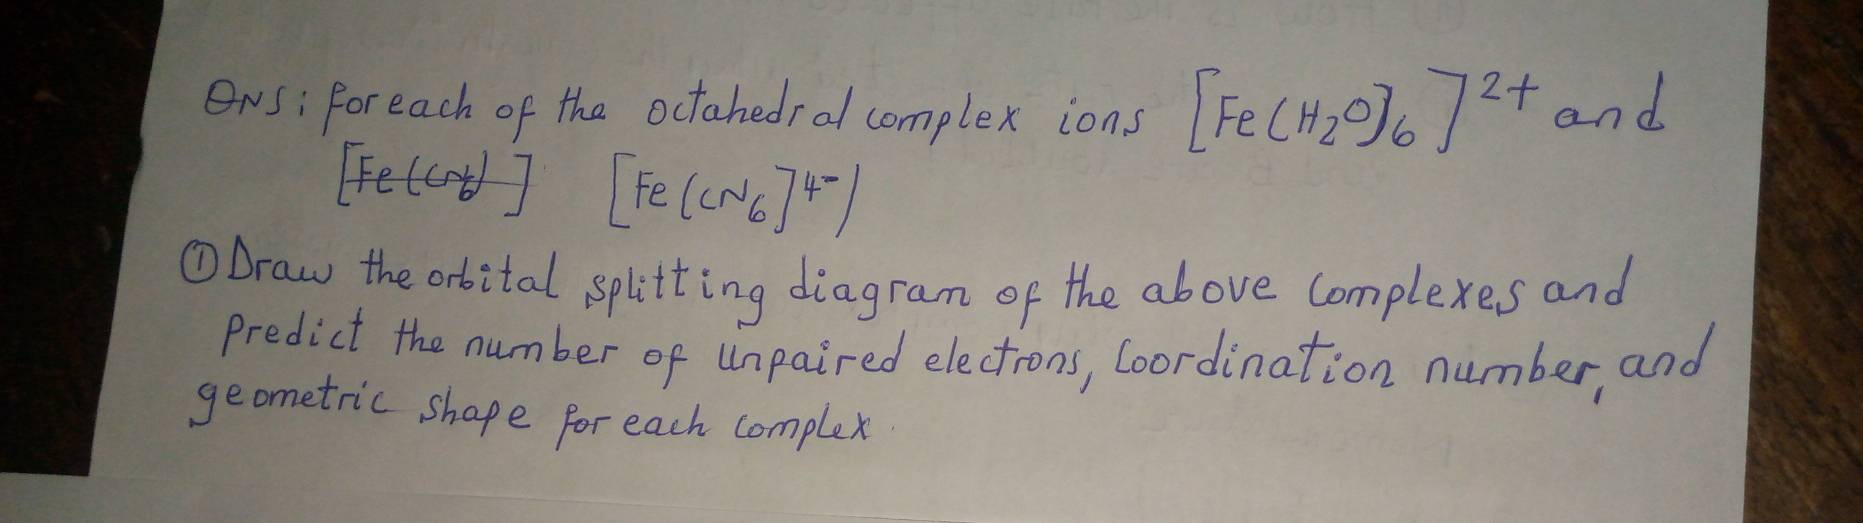 QNS: for each of the octahedral complex ions [Fe(H₂O)₆]²⁺ and
[Fe(CN₆)] [Fe(CN₆]⁴⁻)
① Draw the orbital splitting diagram of the above complexes and
predict the number of unpaired electrons, Coordination number, and
geometric shape for each complex.